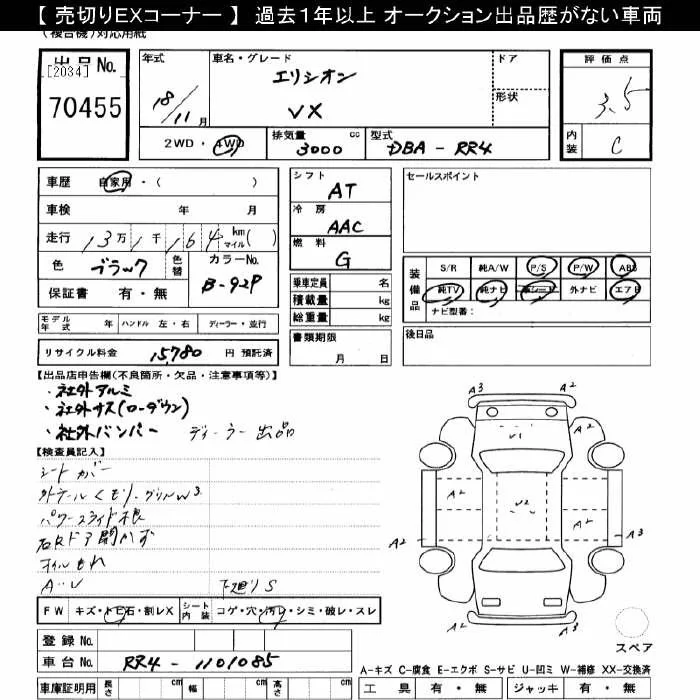 【 売切りEXコーナー 】 過去1年以上 オークション出品歴がない車両
(複合機)対応用紙
出品No.
[2034]
70455
年式 18/11月
車名・グレード エリシオン
VX
ドア
形状
評価点 3.5
内装 C
2WD・4WD
排気量 3000 cc
型式 DBA - RR4
車歴 自家用・( )
車検 年 月
走行 13万1千164 km マイル( )
色 ブラック 色替 カラーNo. B-92P
保証書 有・無
シフト AT
冷房 AAC
燃料 G
乗車定員 名
積載量 kg
総重量 kg
書類期限
月 日
セールスポイント
装備品 S/R 純A/W P/S P/W ABS
純TV 純ナビ 革シート 外ナビ エアB
ナビ型番:
後日品
モデル年式 年 ハンドル 左・右 ディーラー・並行
リサイクル料金 15,780 円 預託済
【出品店申告欄(不良箇所・欠品・注意事項等)】
・社外アルミ
・社外サス(ローダウン)
・社外バンパー ディーラー出品
【検査員記入】
シートカバー
外テールくもり・グリルW3
パワースライド不良
右Rドア開かず
オイルもれ
A・U 下廻りS
FW キズ・トビ石・割レX シート内装 コゲ・穴・汚レ・シミ・破レ・スレ
登録No.
車台No. RR4 - 1101085
車庫証明用 長さ cm 幅 cm 高さ cm
A3
A2
A2
A2
U1
A2
U2
A2
A2
A3
スペア
A-キズ C-腐食 E-エクボ S-サビ U-凹ミ W-補修 XX-交換済
工具 有・無 ジャッキ 有・無